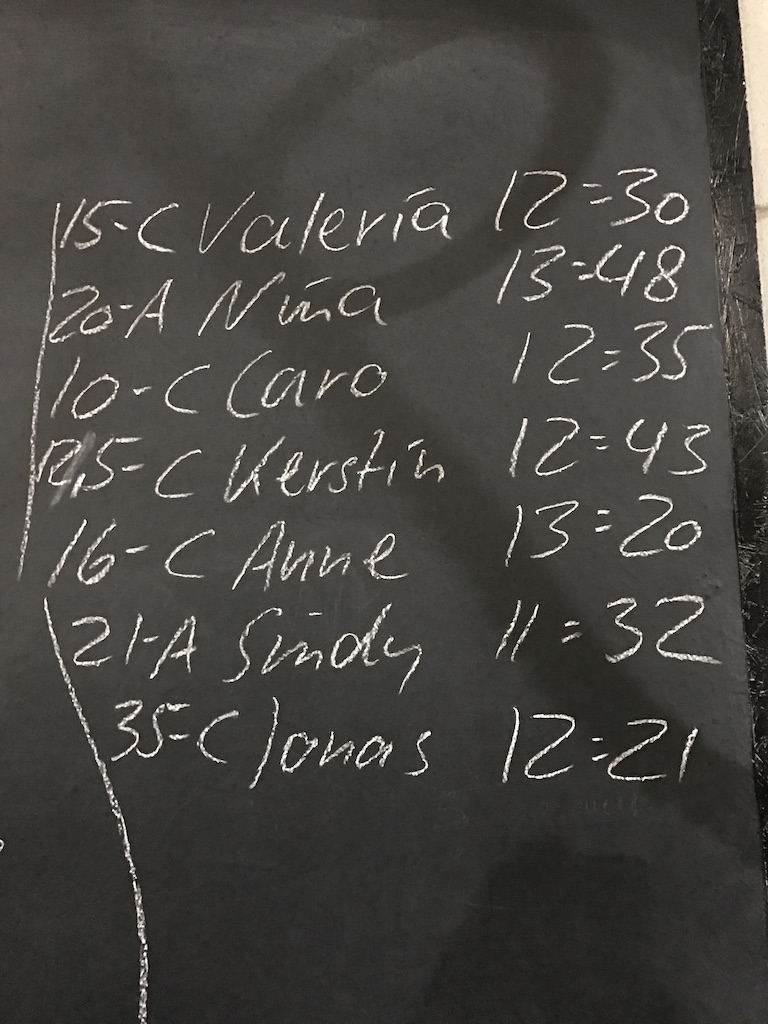 15-C Valeria 12:30
20-A Nina 13:48
10-C Caro 12:35
12,5-C Kerstin 12:43
16-C Anne 13:20
21-A Sindy 11:32
35-C Jonas 12:21